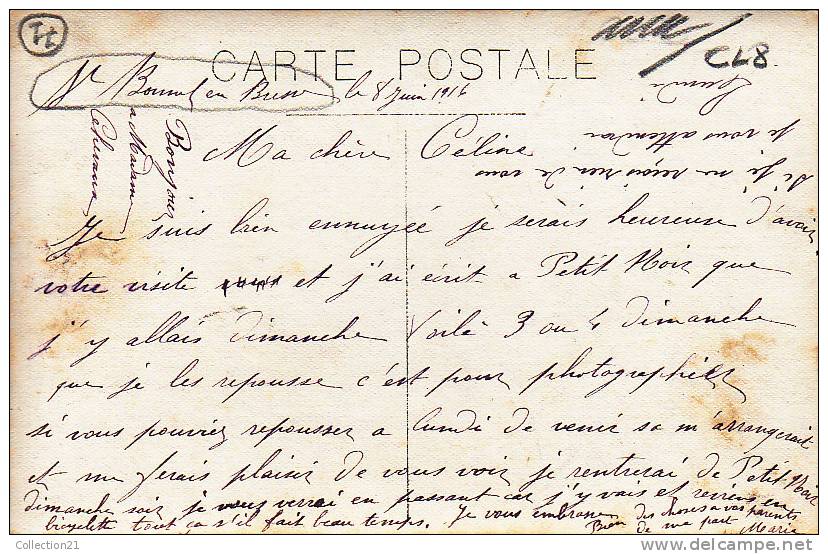 Tt
CL8
CARTE POSTALE
St Bonnet en Bresse le 8 juin 1916
Ma chère Céline
Je suis bien ennuyée je serais heureuse d'avoir
votre visite et j'ai écrit a Petit Noir que
j'y allais dimanche Voilà 3 ou 4 dimanche
que je les repousse c'est pour photographier
si vous pouviez repousser a lundi de venir sa m'arrangerait
et me ferais plaisir de vous voir je rentrerai de Petit Noir
dimanche soir je vous verrai en passant car j'y vais et reviens en
bicyclette tout ça s'il fait beau temps. Je vous embrasse
Bien des choses a vos parents
de ma part Marie
Si je ne reçois rien de vous
je vous attendrai
lundi
Bonjour
a Madame
© Collection21
delcampe.net